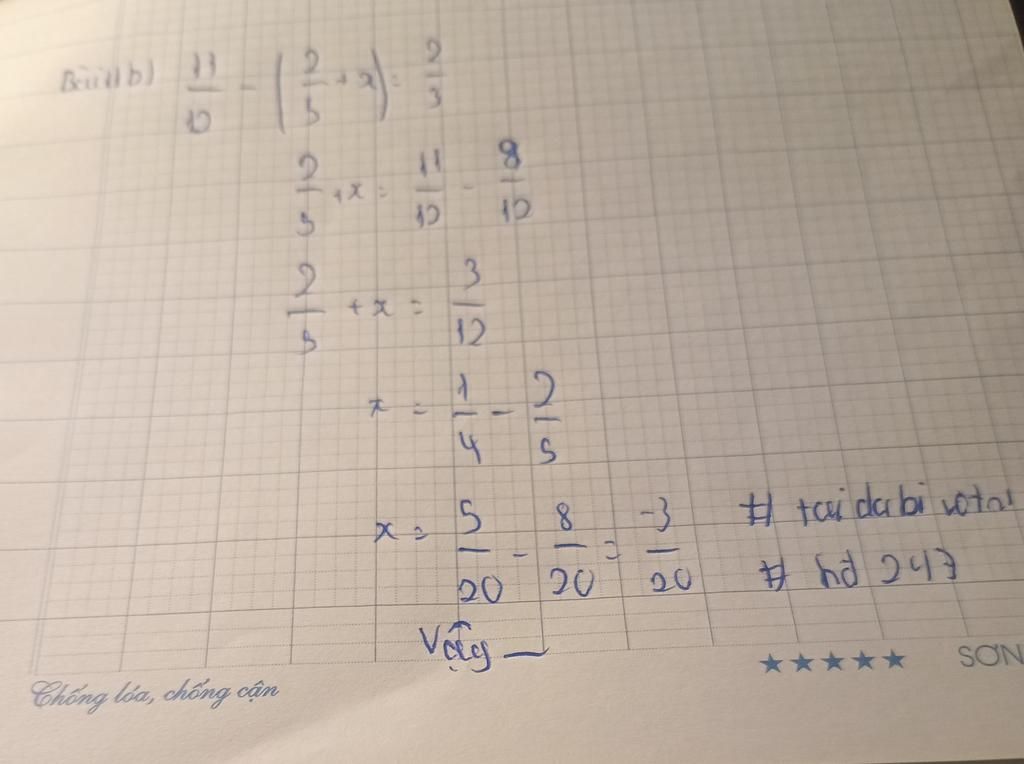 Bài 1 b) 11/12 - (2/5 + x) = 2/3
2/5 + x = 11/12 - 8/12
2/5 + x = 3/12
x = 1/4 - 2/5
x = 5/20 - 8/20 = -3/20 # tai da bi
# hd 247
Vậy —
Chống lóa, chống cận ★★★★★ SƠN